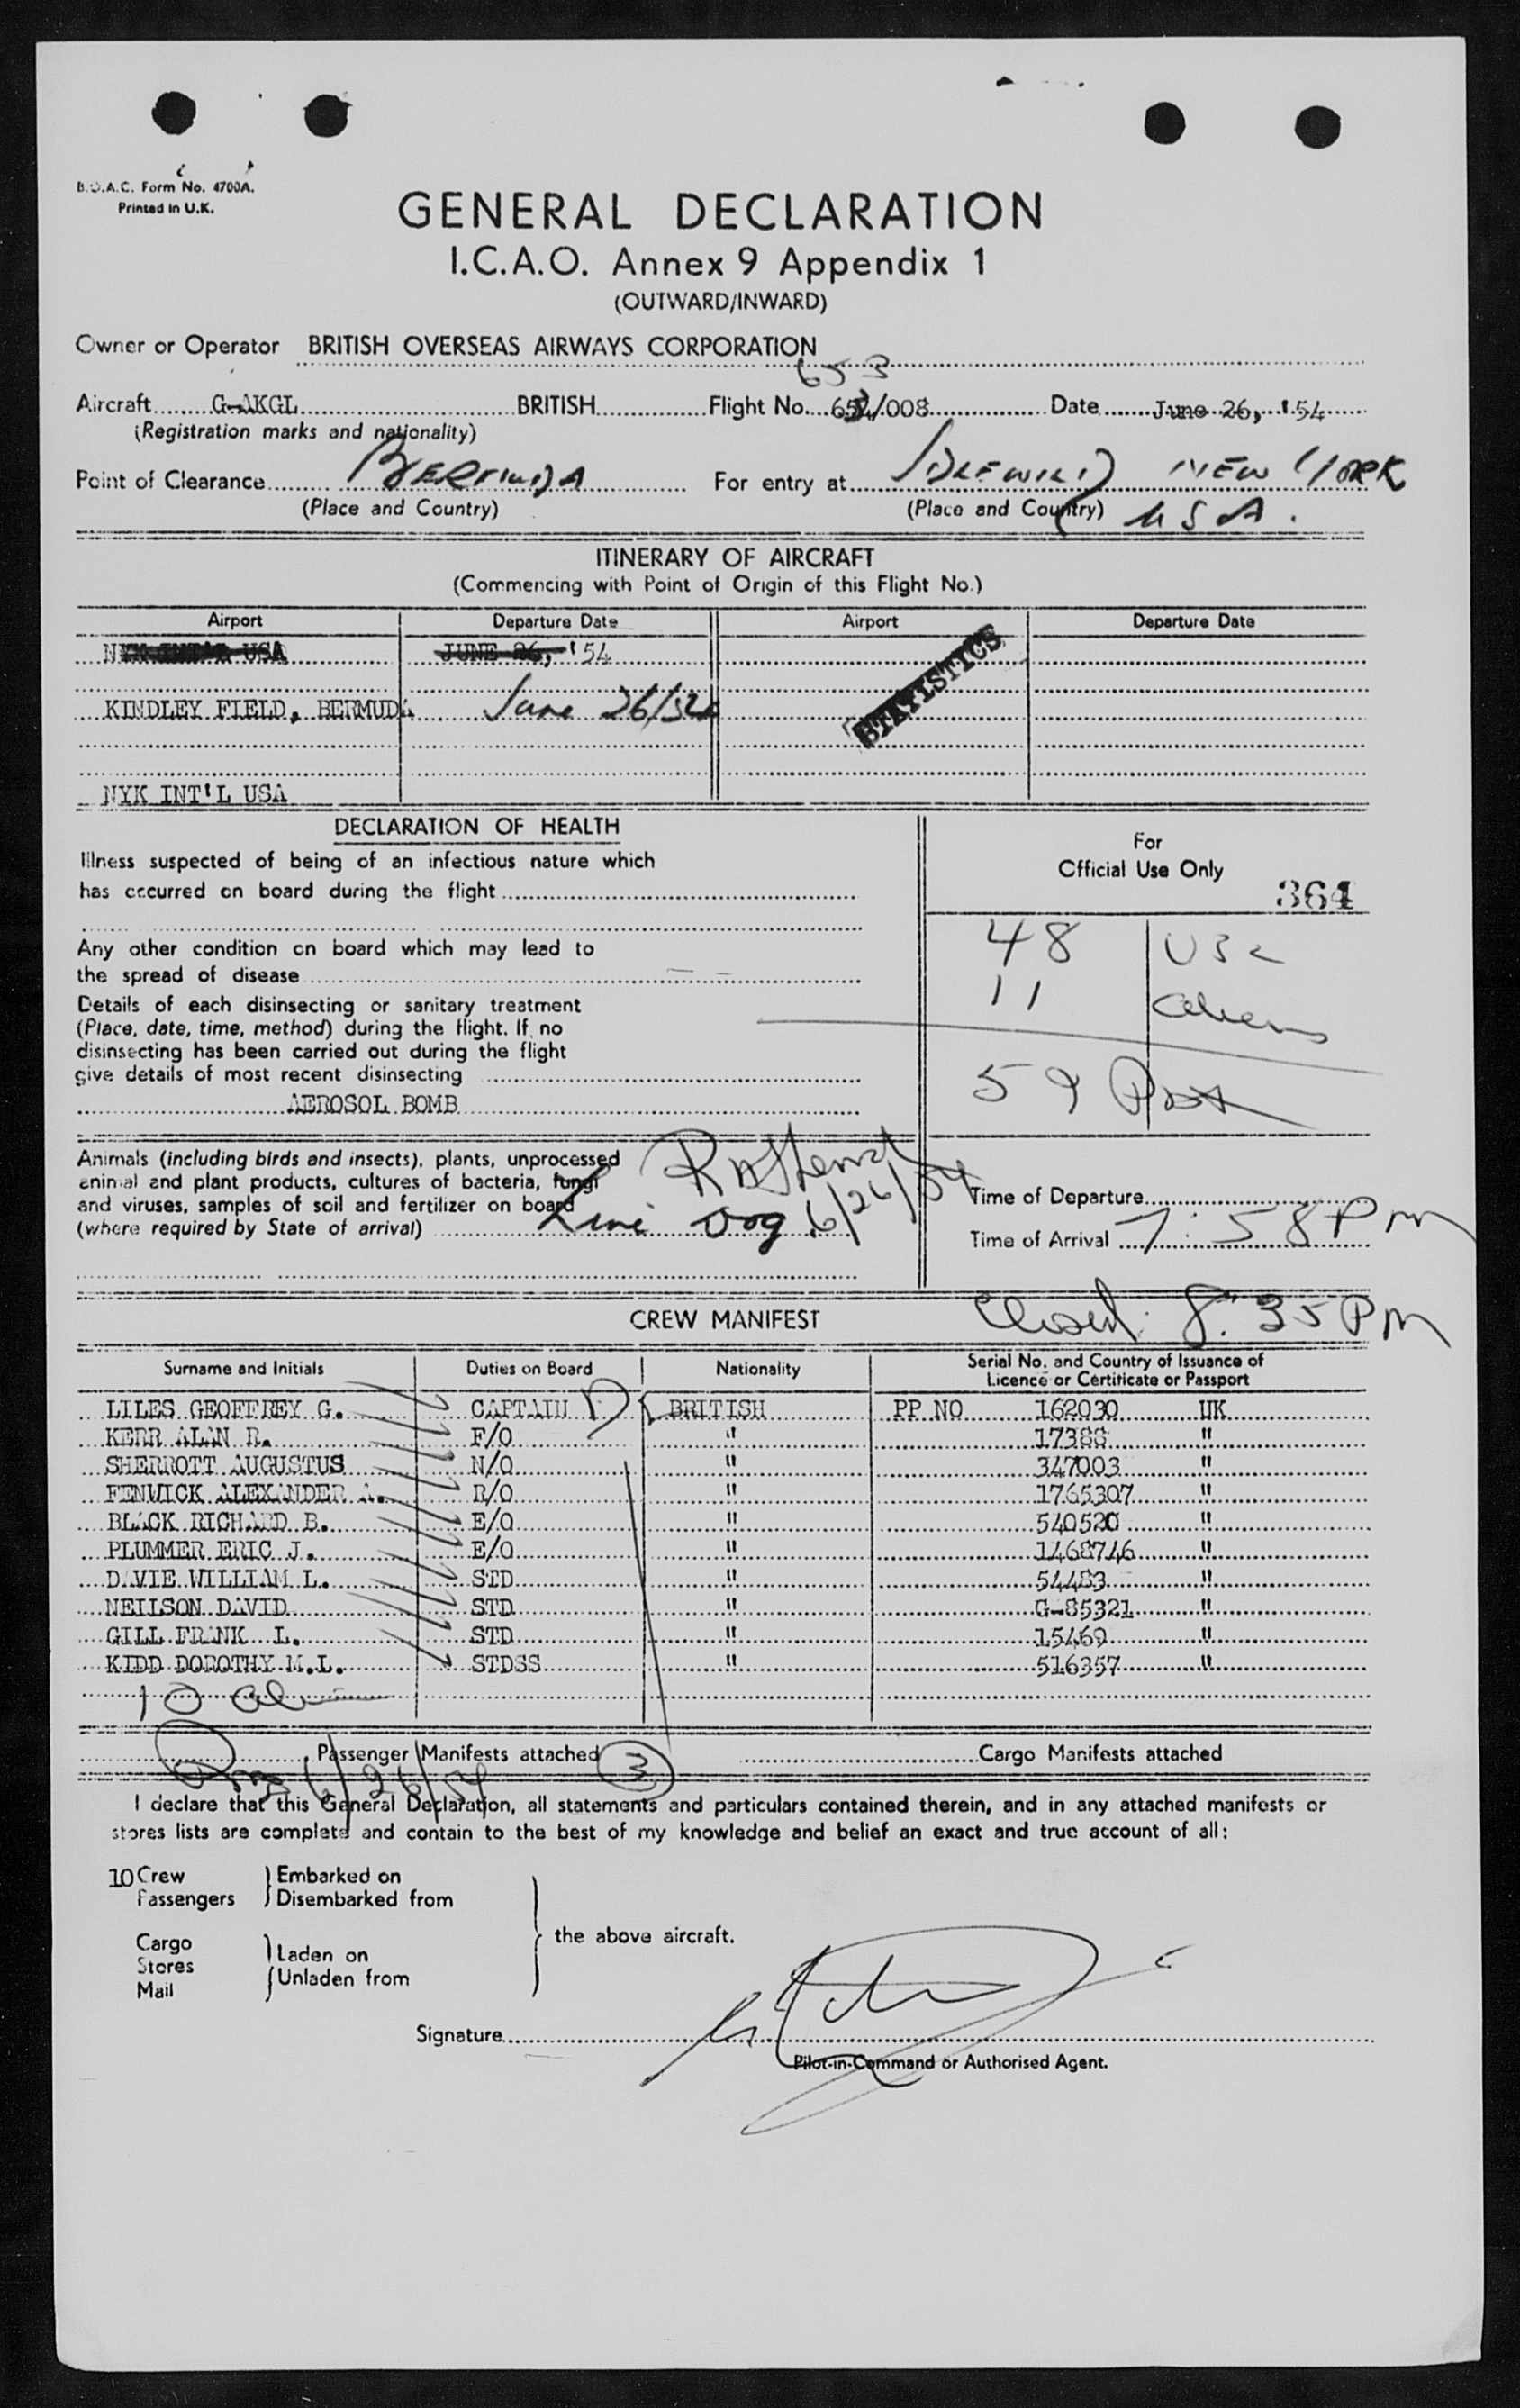 B.O.A.C. Form No. 4700A.
Printed in U.K.
GENERAL DECLARATION
I.C.A.O. Annex 9 Appendix 1
(OUTWARD/INWARD)
Owner or Operator BRITISH OVERSEAS AIRWAYS CORPORATION
653
Aircraft G-AKGL BRITISH Flight No. 652/008 Date June 26, '54
(Registration marks and nationality)
Point of Clearance BERMUDA For entry at IDLEWILD NEW YORK
(Place and Country) (Place and Country) USA.
ITINERARY OF AIRCRAFT
(Commencing with Point of Origin of this Flight No.)
Airport Departure Date Airport Departure Date
NYK INT'L USA JUNE 26, '54
STATISTICS
KINDLEY FIELD, BERMUDA June 26/54
NYK INT'L USA
DECLARATION OF HEALTH
For
Official Use Only
364
Illness suspected of being of an infectious nature which
has occurred on board during the flight
48 USC
Any other condition on board which may lead to
the spread of disease
11 aliens
Details of each disinsecting or sanitary treatment
(Place, date, time, method) during the flight. If no
disinsecting has been carried out during the flight
give details of most recent disinsecting
59 Pax
AEROSOL BOMB
Animals (including birds and insects), plants, unprocessed
animal and plant products, cultures of bacteria, fungi
and viruses, samples of soil and fertilizer on board
(where required by State of arrival) Live Dog 6/26/54
Time of Departure
Time of Arrival 7:58 PM
Closed: 8:35 PM
CREW MANIFEST
Surname and Initials Duties on Board Nationality Serial No. and Country of Issuance of
Licence or Certificate or Passport
LILES GEOFFREY G. CAPTAIN BRITISH PP NO 162030 UK
KERR ALAN R. F/O " 17388 "
SHERROTT AUGUSTUS N/O " 347003 "
FENWICK ALEXANDER A. R/O " 1765307 "
BLACK RICHARD B. E/O " 540520 "
PLUMMER ERIC J. E/O " 1468746 "
DAVIE WILLIAM L. STD " 54483 "
NEILSON DAVID STD " G-85321 "
GILL FRANK L. STD " 15469 "
KIDD DOROTHY M.L. STDSS " 516357 "
10
Passenger Manifests attached 3 Cargo Manifests attached
6/26/54
I declare that this General Declaration, all statements and particulars contained therein, and in any attached manifests or
stores lists are complete and contain to the best of my knowledge and belief an exact and true account of all:
10 Crew Embarked on
Passengers Disembarked from
the above aircraft.
Cargo
Stores Laden on
Mail Unladen from
Signature
Pilot-in-Command or Authorised Agent.